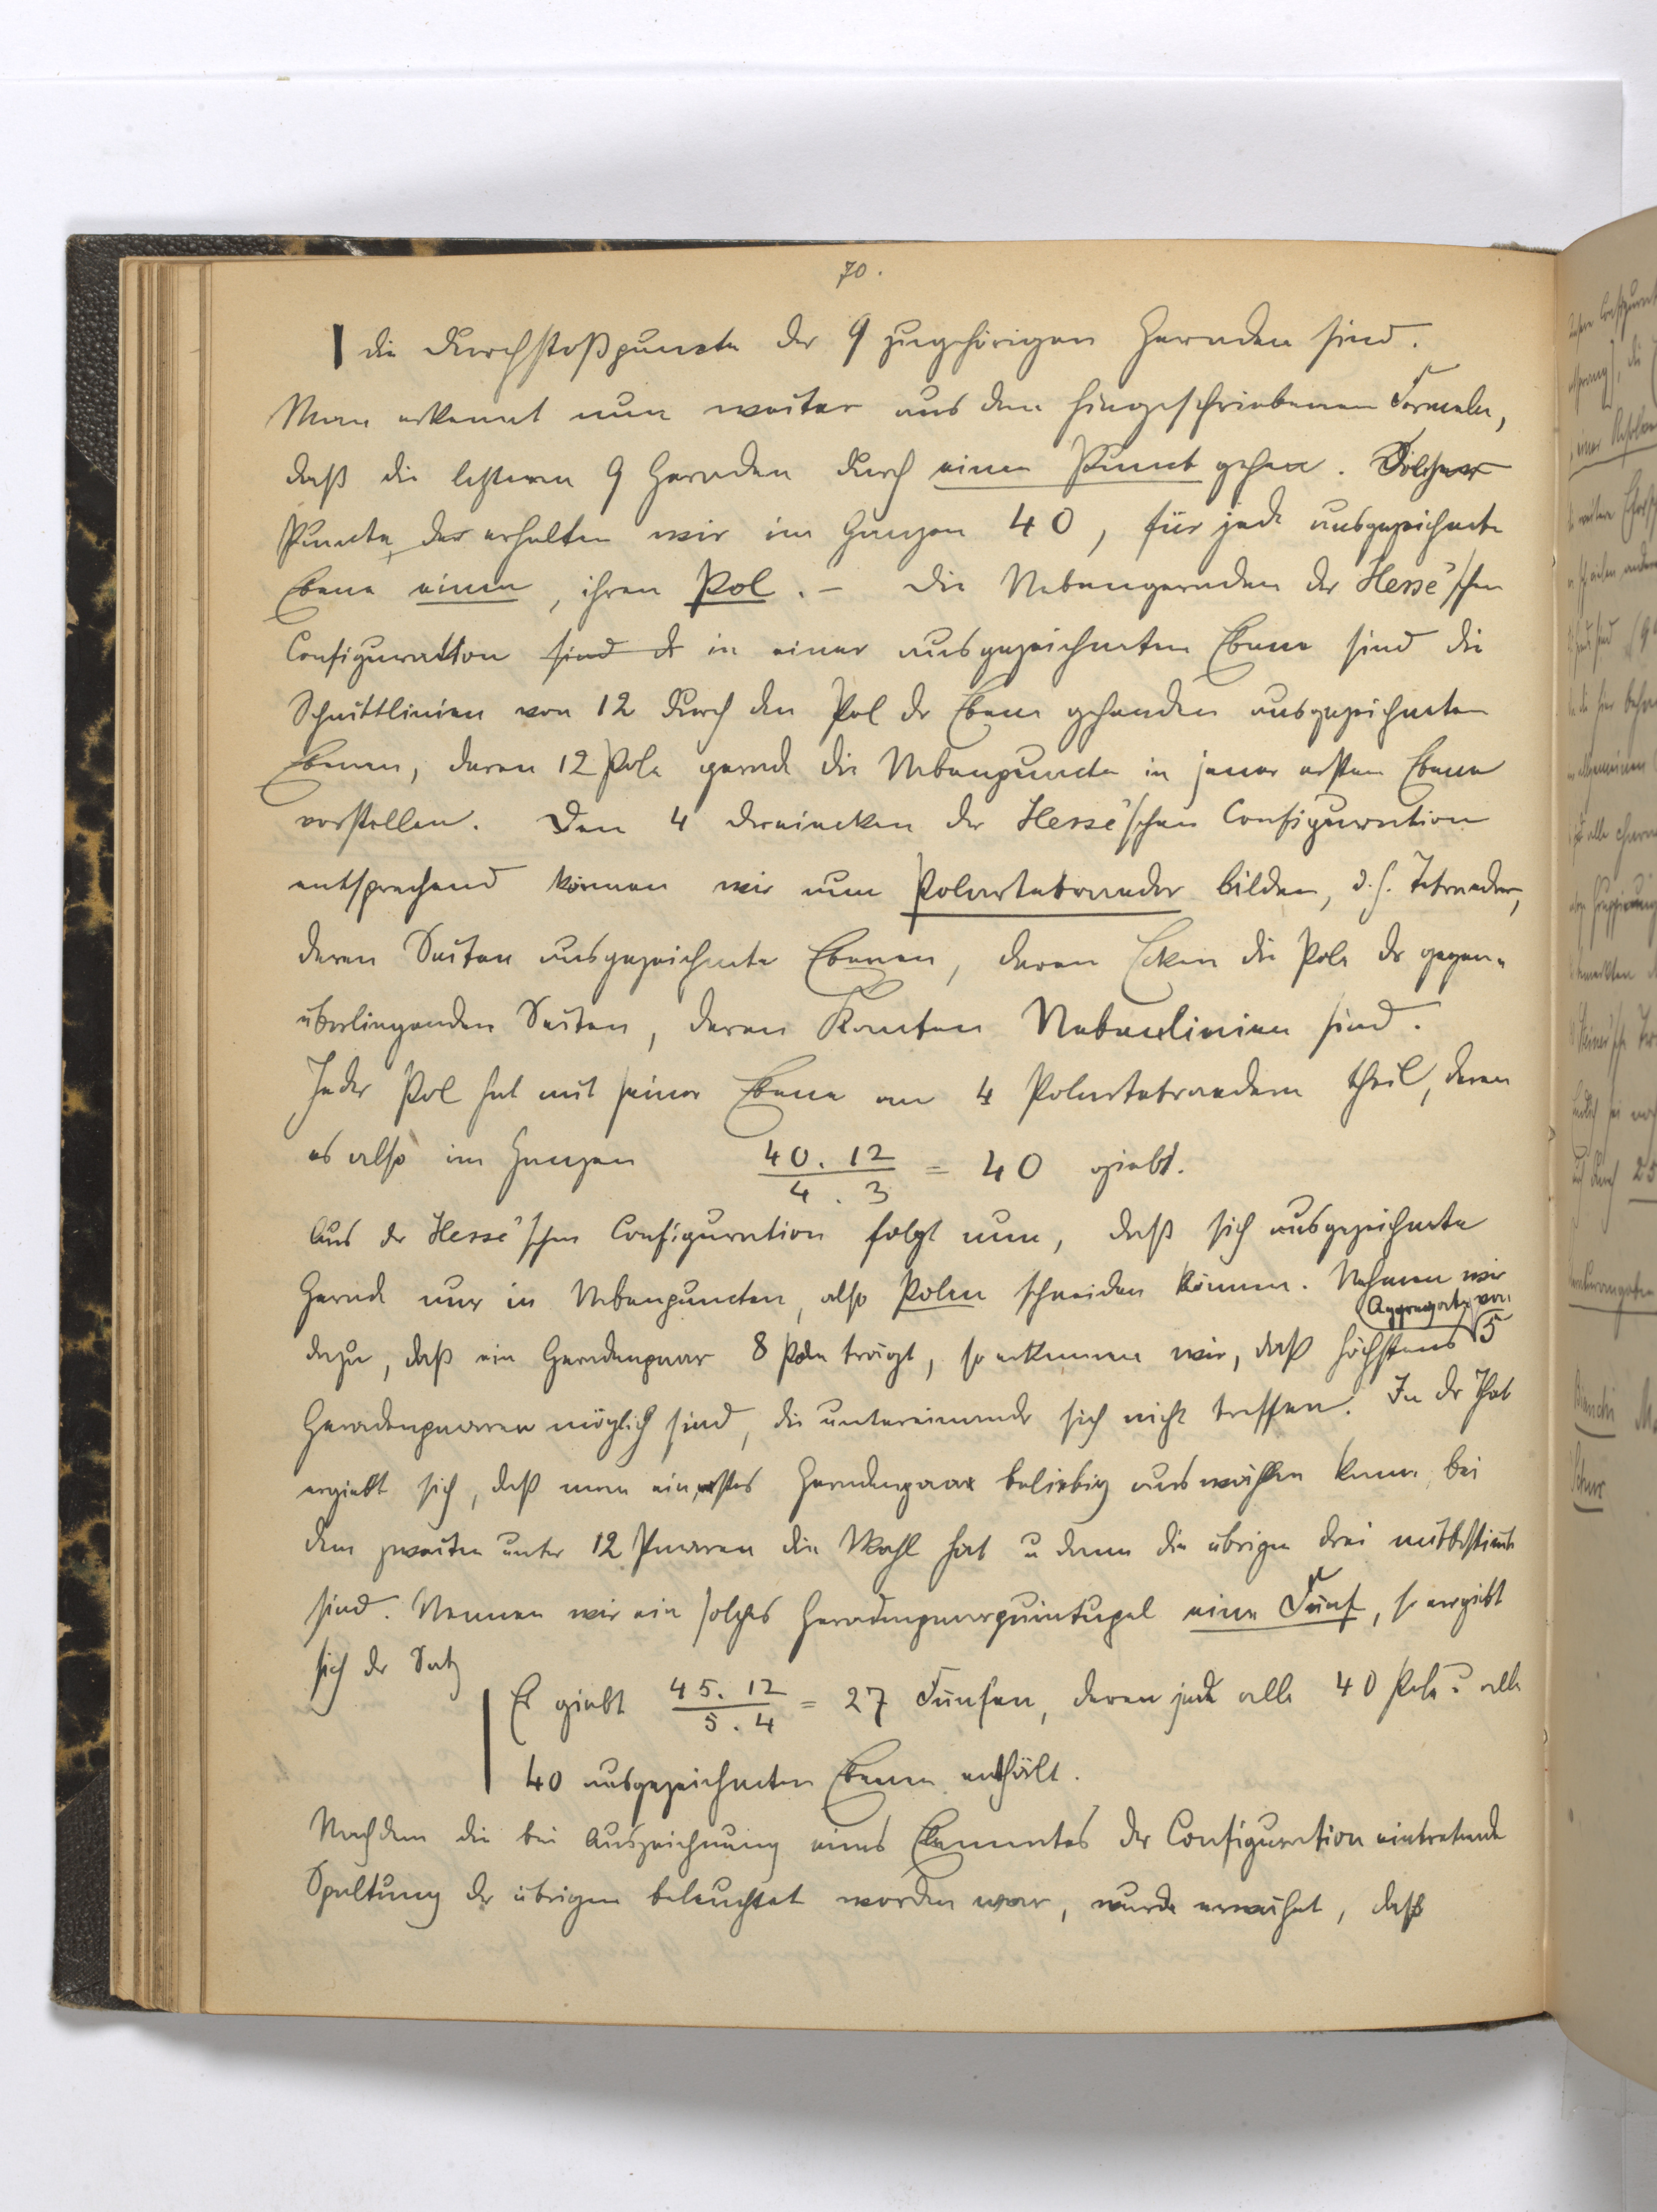 70.
die Durchstoßpuncte der 9 zugehörigen Geraden sind.
Man erkennt nun weiter aus den hingeschriebenen Formeln,
daß die letzteren 9 Geraden durch einen Punct gehen. Solcher
Puncte, der erhalten wir im Ganzen 40, für jede ausgezeichnete
Ebene einen, ihren Pol. – Die Nebengeraden der Hesse'schen
Configuration sind d in einer ausgezeichneten Ebene sind die
Schnittlinien von 12 durch den Pol der Ebene gehenden ausgezeichneten
Ebenen, deren 12 Pole gerade die Nebenpuncte in jener ersten Ebene
vorstellen. Den 4 Dreiecken der Hesse'schen Configuration
entsprechend können wir nun Polartetraeder bilden, d.h. Tetraeder,
deren Seiten ausgezeichnete Ebenen, deren Ecken die Pole der gegen-
überliegenden Seiten, deren Kanten Nebenlinien sind.
Jeder Pol hat mit seiner Ebene an 4 Polartetraedern theil, deren
es also im Ganzen 40.12 / 4.3 = 40 giebt.
Aus der Hesse'schen Configuration folgt nun, daß sich ausgezeichnete
Gerade nur in Nebenpuncten, also Polen schneiden können. Nehmen wir
Aggregate von
dazu, daß ein Geradenpaar 8 Pole trägt, so erkennen wir, daß höchstens 5
Geradenpaaren möglich sind, die untereinander sich nicht treffen. In der That
ergiebt sich, daß man ein erstes Geradenpaar beliebig auswählen kann, bei
dem zweiten unter 12 Paaren die Wahl hat u dann die übrigen drei mitbestimmt
sind. Nennen wir ein solches Geradenpaarquintupel eine Fünf, so ergiebt
sich der Satz
Es giebt 45.12 / 5.4 = 27 Fünfen, deren jede alle 40 Pole u alle
40 ausgezeichneten Ebenen enthält.
Nachdem die bei Auszeichnung eines Elementes der Configuration eintretende
Spaltung der übrigen beleuchtet worden war, wurde erwähnt, daß